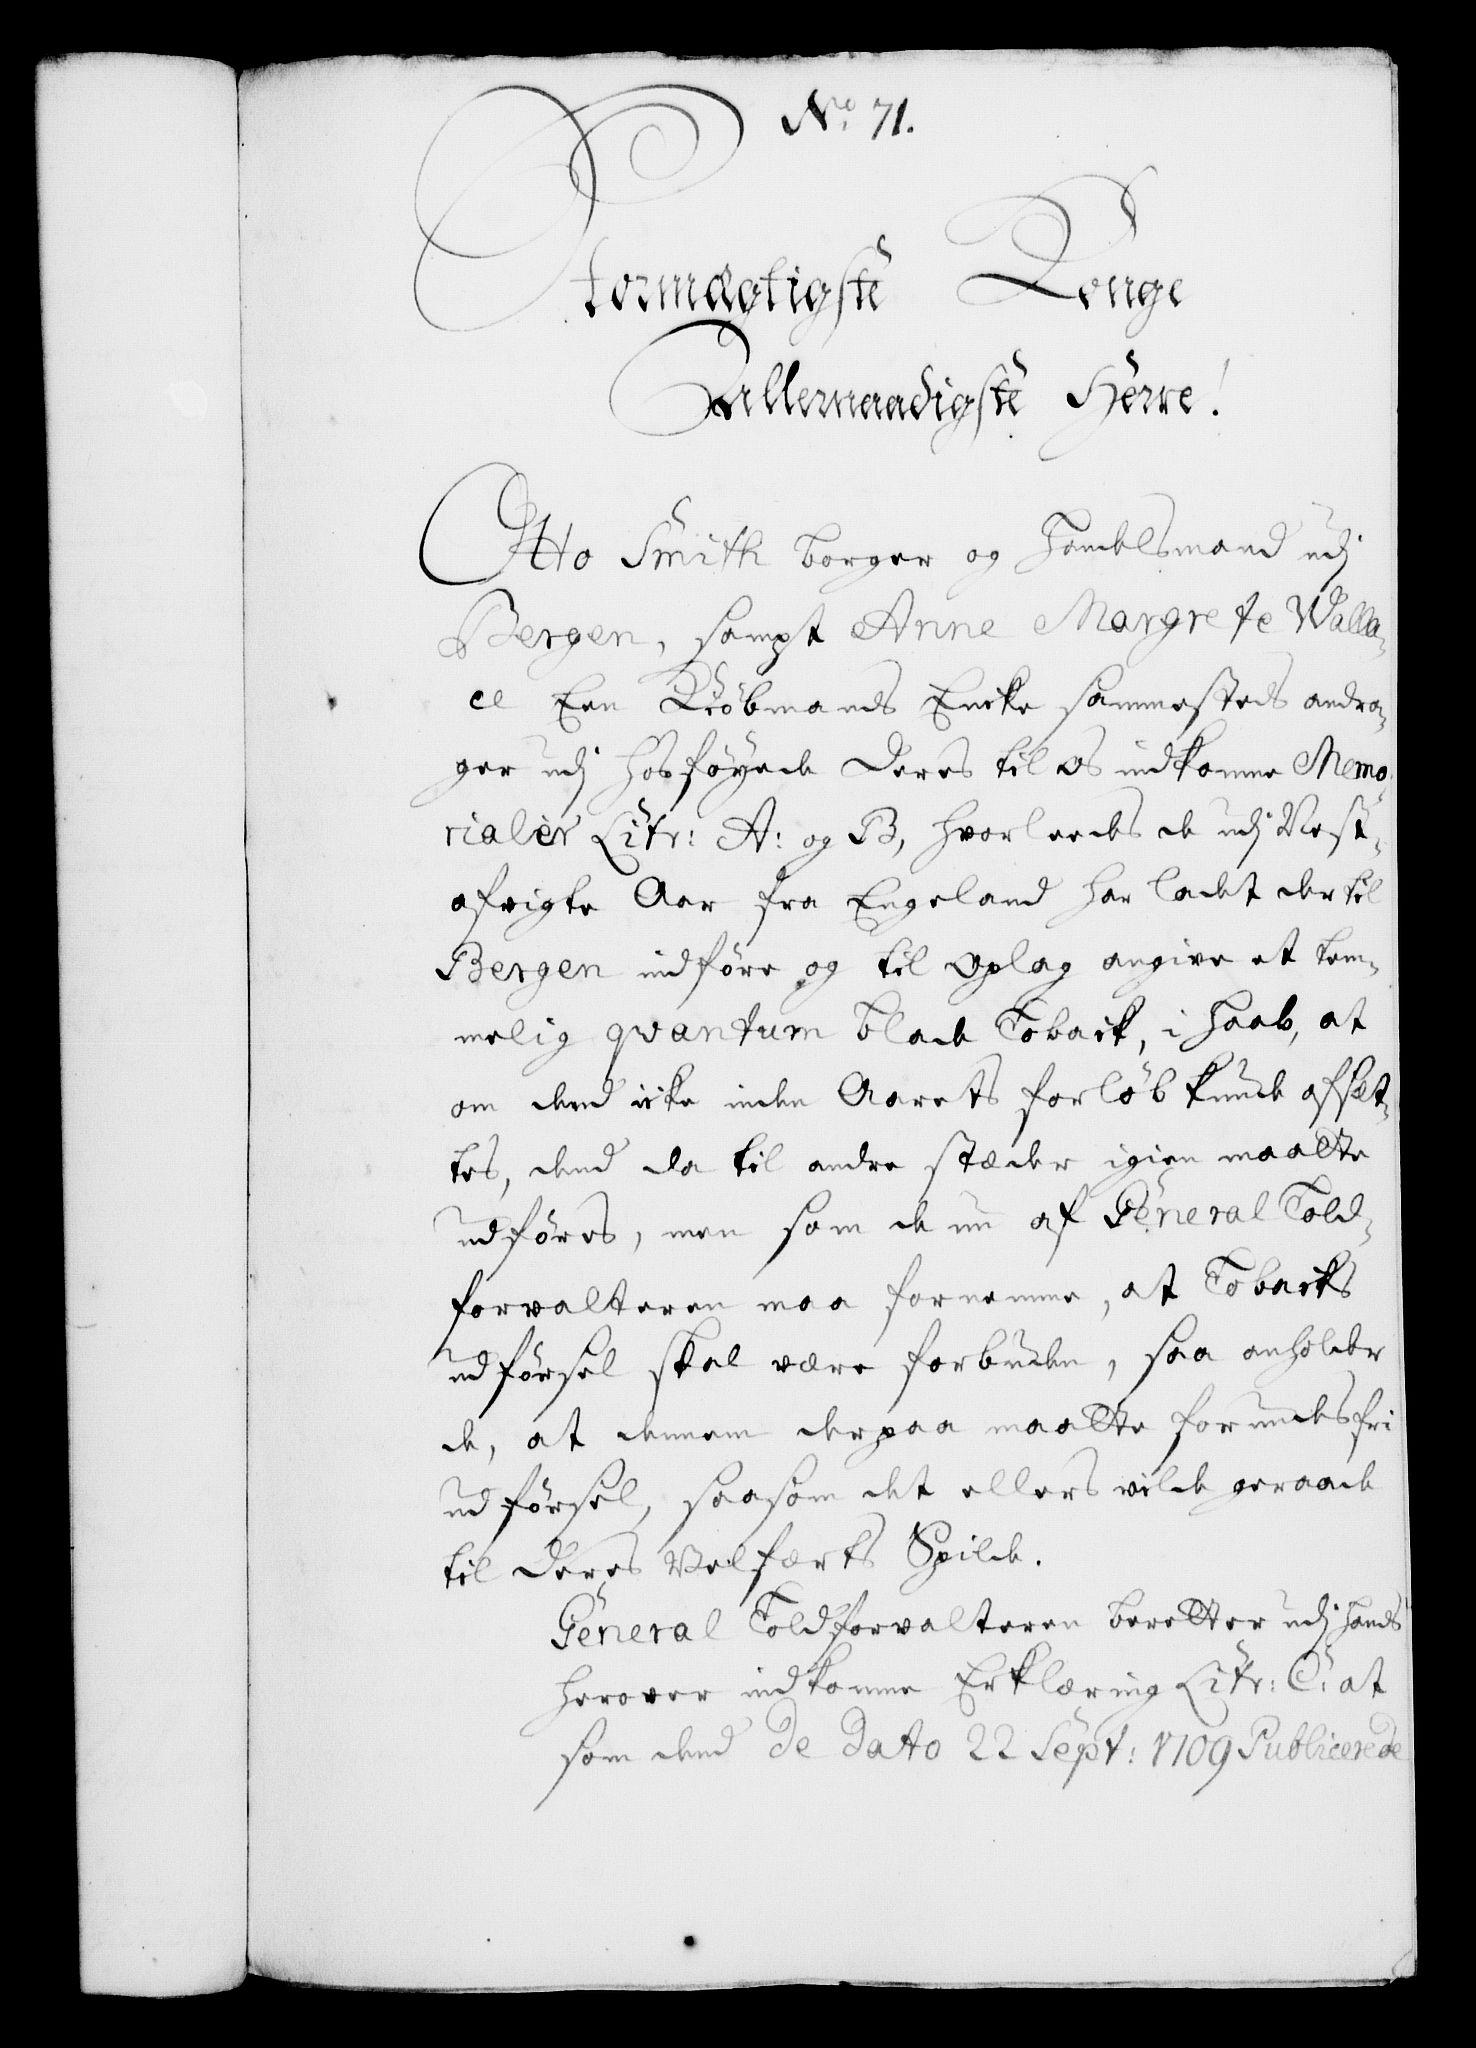 No. 71.
Stormægtigste Konge
Allernaadigste Herre!
Otto Smith borger og Handelsmand udj
Bergen, sampt Anne Margrete Walla-
ce Een Kiöbmands Encke sammesteds andra-
ger udj hosföyede deres til os indkomne Memo-
rialier Litr: A: og B, hvorleedes de udj Nest-
afvigte Aar fra Engeland har ladet der til
Bergen indföre og til oplag angive et tem-
melig qvantum blade Toback, i haab, at
om dend icke inden Aarets forlöb kunde afsæt-
tes, dend da til andre stæder igien maatte
udföres, men som de nu af General Told-
forvalteren maa fornemme, at Tobacks
udförsel skal være forbuden, saa anholder
de, at dennem derpaa maatte forundes fri
udförsel, saasom det ellers vilde geraade
til deres Velfærts Spilde.
General Toldforvalteren beretter udj hands
herover indkomne Erklæring Litr: C: at
som dend de dato 22 Sept: 1709 Publicerede